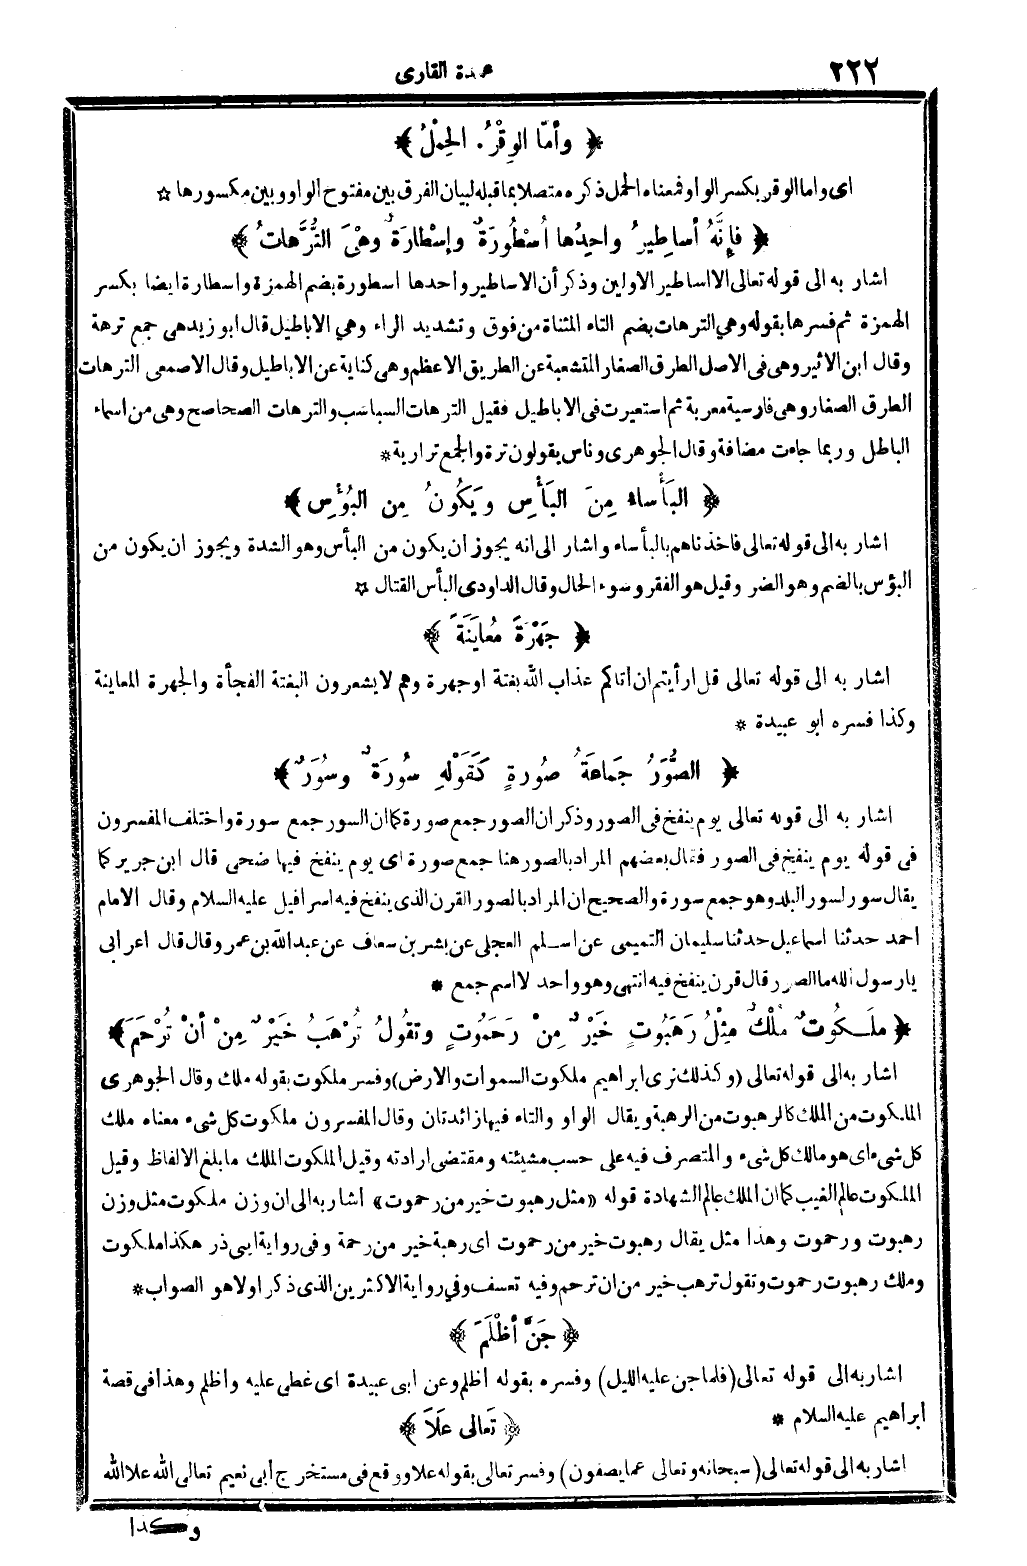 ٢٢٢ عمدة القارى
﴿ وأمَّا الوِقْرُ. الحِمْلُ ﴾
اى واما الوقر بكسر الواو فمعناه الحمل ذكره متصلا بما قبله لبيان الفرق بين مفتوح الواو وبين مكسورها ☆
﴿ فإنَّهُ أساطِيرُ واحِدُها أُسْطُورَةٌ وإسْطارَةٌ وهْىَ التُّرَّهاتُ ﴾
اشار به الى قوله تعالى الا اساطير الاولين وذكر أن الاساطير واحدها اسطورة بضم الهمزة واسطارة ايضا بكسر
الهمزة ثم فسرها بقوله وهي الترهات بضم التاء المثناة من فوق وتشديد الراء وهي الاباطيل قال ابو زيد هى جمع ترهة
وقال ابن الاثير وهى فى الاصل الطرق الصغار المتشعبة عن الطريق الاعظم وهى كناية عن الاباطيل وقال الاصمعى الترهات
الطرق الصغار وهى فارسية معربة ثم استعيرت فى الاباطيل فقيل الترهات السباسب والترهات الصحاصح وهى من اسماء
الباطل وربما جاءت مضافة وقال الجوهرى وناس يقولون ترة والجمع تراربة *
﴿ البَأْساءُ مِنَ البَأْسِ ويَكُونُ مِن البُؤْسِ ﴾
اشار به الى قوله تعالى فاخذناهم بالبأساء واشار الى انه يجوز ان يكون من البأس وهو الشدة ويجوز ان يكون من
البؤس بالضم وهو الضر وقيل هو الفقر وسوء الحال وقال الداودى البأس القتال ☆
﴿ جَهْرَةً مُعايَنَةً ﴾
اشار به الى قوله تعالى قل ارأيتم ان اتاكم عذاب الله بغتة او جهرة وهم لا يشعرون البغتة الفجأة والجهرة المعاينة
وكذا فسره ابو عبيدة *
﴿ الصُّوَرُ جَماعَةُ صُورَةٍ كَقَوْلِهِ سُورَةٌ وسُوَرٌ ﴾
اشار به الى قوله تعالى يوم ينفخ فى الصور وذكر ان الصور جمع صورة كما ان السور جمع سورة واختلف المفسرون
فى قوله يوم ينفخ فى الصور فقال بعضهم المراد بالصور هنا جمع صورة اى يوم ينفخ فيها ضحى قال ابن جرير كما
يقال سور لسور البلد وهو جمع سورة والصحيح ان المراد بالصور القرن الذى ينفخ فيه اسرافيل عليه السلام وقال الامام
احمد حدثنا اسماعيل حدثنا سليمان التميمى عن اسلم العجلى عن بشر بن سعاف عن عبدالله بن عمر وقال قال اعرابى
يا رسول الله ما الصور قال قرن ينفخ فيه انتهى وهو واحد لا اسم جمع *
﴿ ملَكُوتٌ مُلْكٌ مِثْلُ رَهَبُوتٍ خَيْرٌ مِنْ رَحَمُوتٍ وتقُولُ تُرْهَبُ خَيْرٌ مِنْ أنْ تُرْحَمَ ﴾
اشار به الى قوله تعالى (وكذلك نرى ابراهيم ملكوت السموات والارض) وفسر ملكوت بقوله ملك وقال الجوهرى
الملكوت من الملك كالرهبوت من الرهبة ويقال الواو والتاء فيها زائدتان وقال المفسرون ملكوت كل شىء معناه ملك
كل شىء اى هو مالك كل شىء والمتصرف فيه على حسب مشيئته ومقتضى ارادته وقيل الملكوت الملك ما بلغ الالفاظ وقيل
الملكوت عالم الغيب كما ان الملك عالم الشهادة قوله «مثل رهبوت خير من رحموت» اشار به الى ان وزن ملكوت مثل وزن
رهبوت ورحموت وهذا مثل يقال رهبوت خير من رحموت اى رهبة خير من رحمة وفى رواية ابى ذر هكذا ملكوت
وملك رهبوت رحموت وتقول ترهب خير من ان ترحم وفيه تعسف وفي رواية الاكثرين الذى ذكر اولا هو الصواب *
﴿ جَنَّ أظْلَمَ ﴾
اشار به الى قوله تعالى (فلما جن عليه الليل) وفسره بقوله اظلم وعن ابى عبيدة اى غطى عليه واظلم وهذا فى قصة
ابراهيم عليه السلام *
﴿ تَعالى عَلَا ﴾
اشار به الى قوله تعالى (سبحانه وتعالى عما يصفون) وفسر تعالى بقوله علا ووقع فى مستخرج أبى نعيم تعالى الله علا الله
وكذا